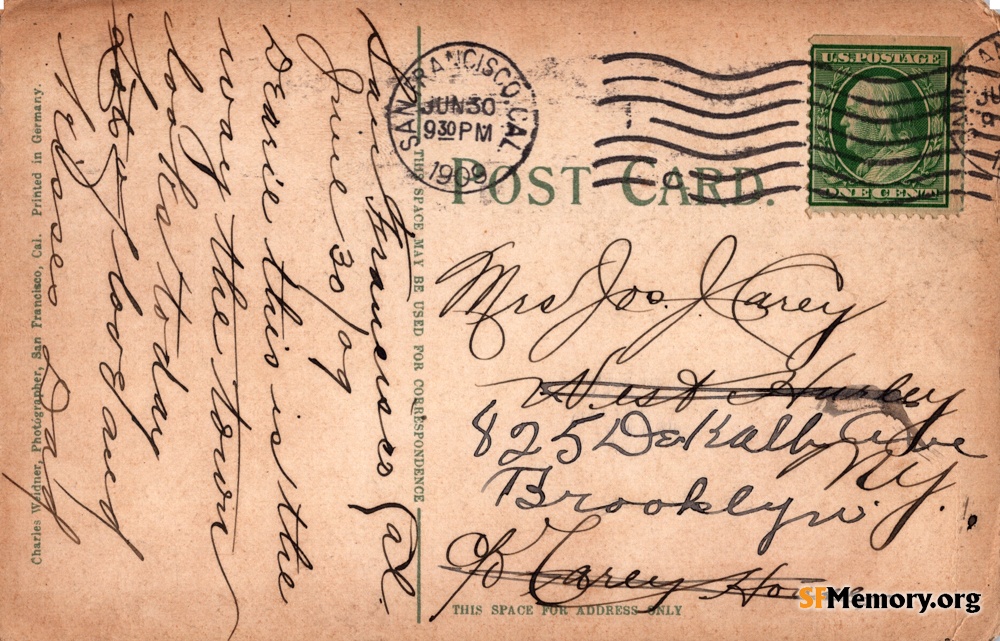 San Francisco Cal.
June 30/09
Dearie this is the
way the town
looks today
Lots of love and
Kisses
Charles Weidner, Photographer, San Francisco, Cal. Printed in Germany.
THIS SPACE MAY BE USED FOR CORRESPONDENCE
SAN FRANCISCO, CAL.
JUN 30
9 30 PM
1909
1
U.S. POSTAGE
ONE CENT
POST CARD.
Mrs Jos. J. Carey
West Hurley
825 DeKalb Ave
N.Y.
Brooklyn
c/o Carey House
THIS SPACE FOR ADDRESS ONLY
SFMemory.org